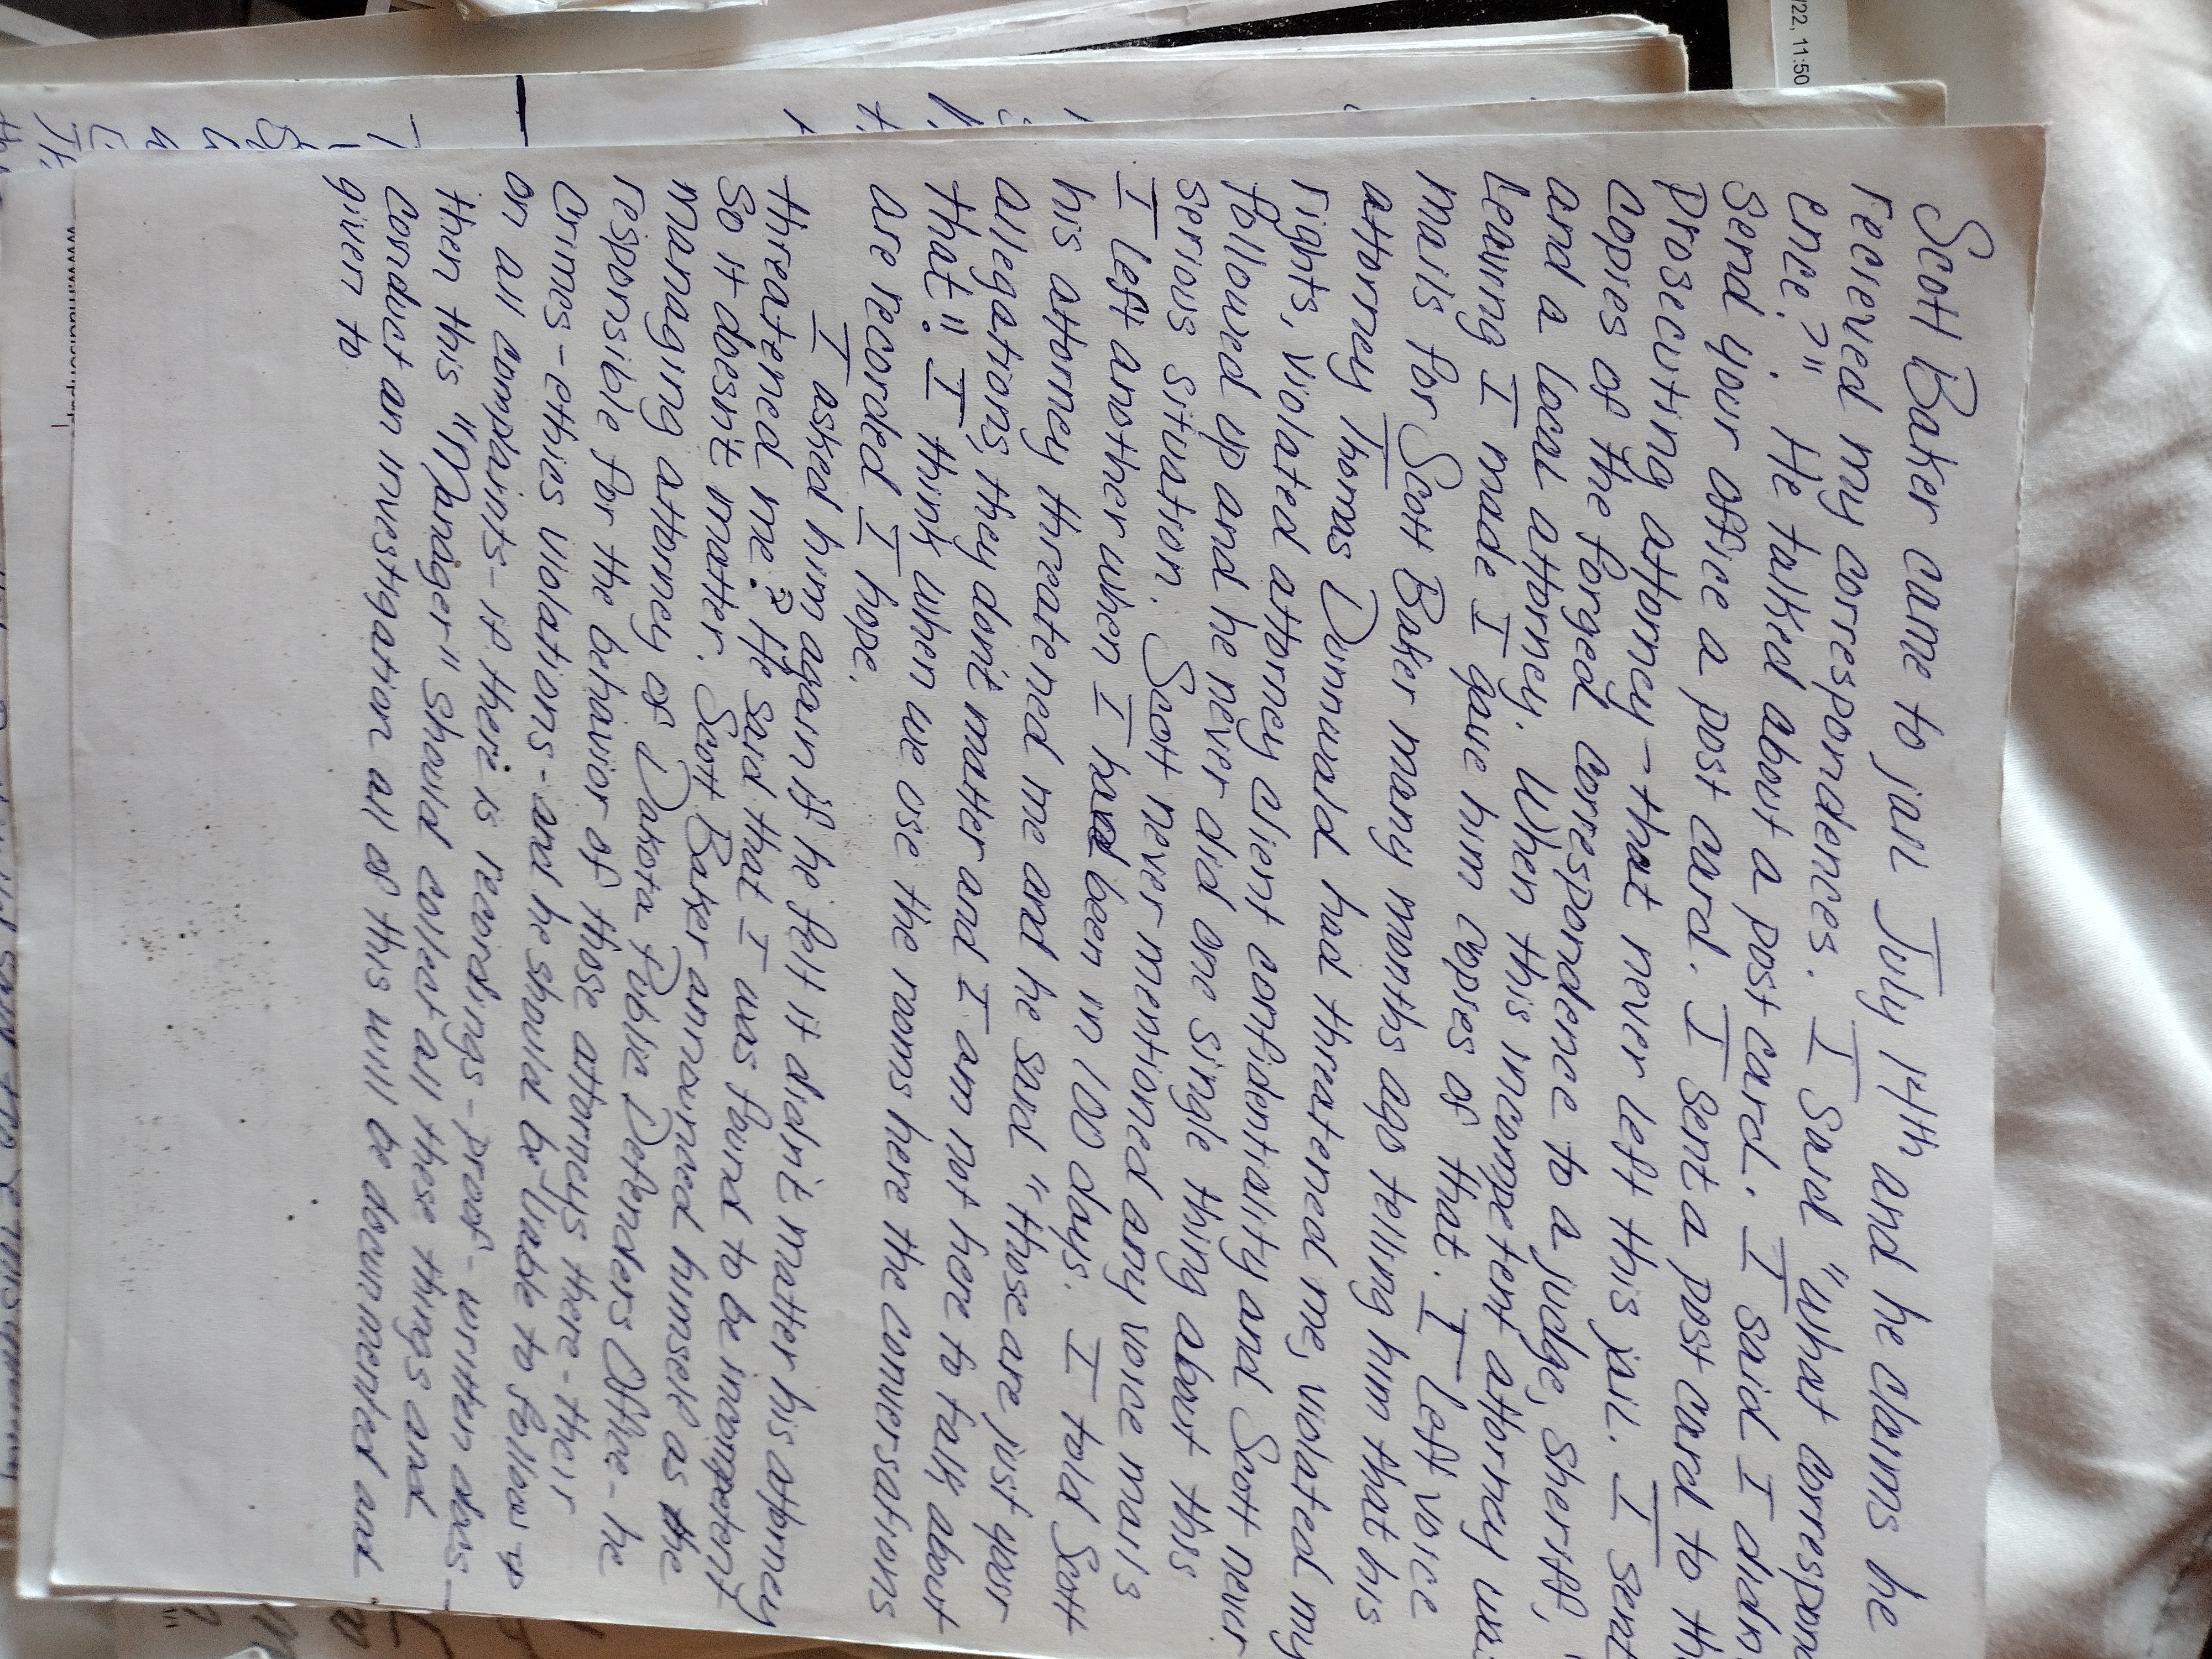 Scott Baker came to jail July 14th and he claims he
received my correspondences. I said "what correspond
ence?" He talked about a post card. I said I didn
send your office a post card. I sent a post card to th
prosecuting attorney - that never left this jail. I sent
copies of the forged correspondence to a judge, sheriff,
and a local attorney. When this incompetent attorney was
leaving I made I gave him copies of that. I left voice
mails for Scott Baker many months ago telling him that his
attorney Thomas Dunnwald had threatened me, violated my
rights, violated attorney client confidentiality and Scott never
followed up and he never did one single thing about this
serious situation. Scott never mentioned any voice mails
I left another when I had been in 100 days. I told Scott
his attorney threatened me and he said "those are just your
allegations, they don't matter and I am not here to talk about
that". I think when we use the rooms here the conversations
are recorded I hope.
I asked him again if he felt it didn't matter his attorney
threatened me? He said that I was found to be incompetent
So it doesn't matter. Scott Baker announced himself as the
managing attorney of Dakota Public Defenders Office - he
responsible for the behavior of those attorneys there - their
crimes - ethics violations - and he should be liable to follow up
on all complaints - if there is recordings - proof - written docs -
then this "Manager" should collect all these things and
conduct an investigation all of this will be documented and
given to
22, 11:50